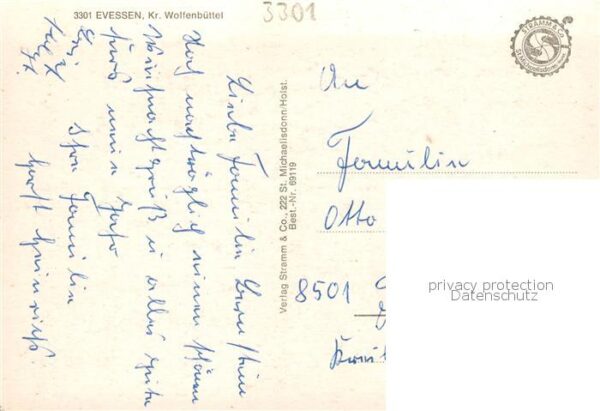 3301 EVESSEN, Kr. Wolfenbüttel
3301
STRAMM & Co
St. Michaelisdonn
Liebe Familie
Noch nachträglich einen schönen
Weihnachtsgruß u. alles Gute
fürs neue Jahr
Ihre Familie
Horst Heinrichs.
Verlag Stramm & Co., 222 St. Michaelisdonn/Holst.
Best.-Nr. 69119
An
Familie
Otto
8501
privacy protection
Datenschutz